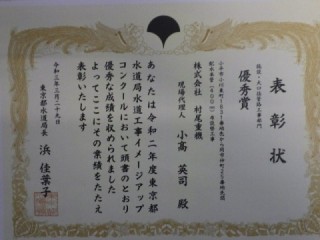 表彰状
優秀賞
株式会社 村尾重機
現場代理人 小高 英司 殿
あなたは令和二年度東京都
水道局水道工事イメージアップ
コンクールにおいて頭書のとおり
優秀な成績を収められました
よってここにその業績をたたえ
表彰します
令和三年三月二十九日
東京都水道局長 浜 佳葉子